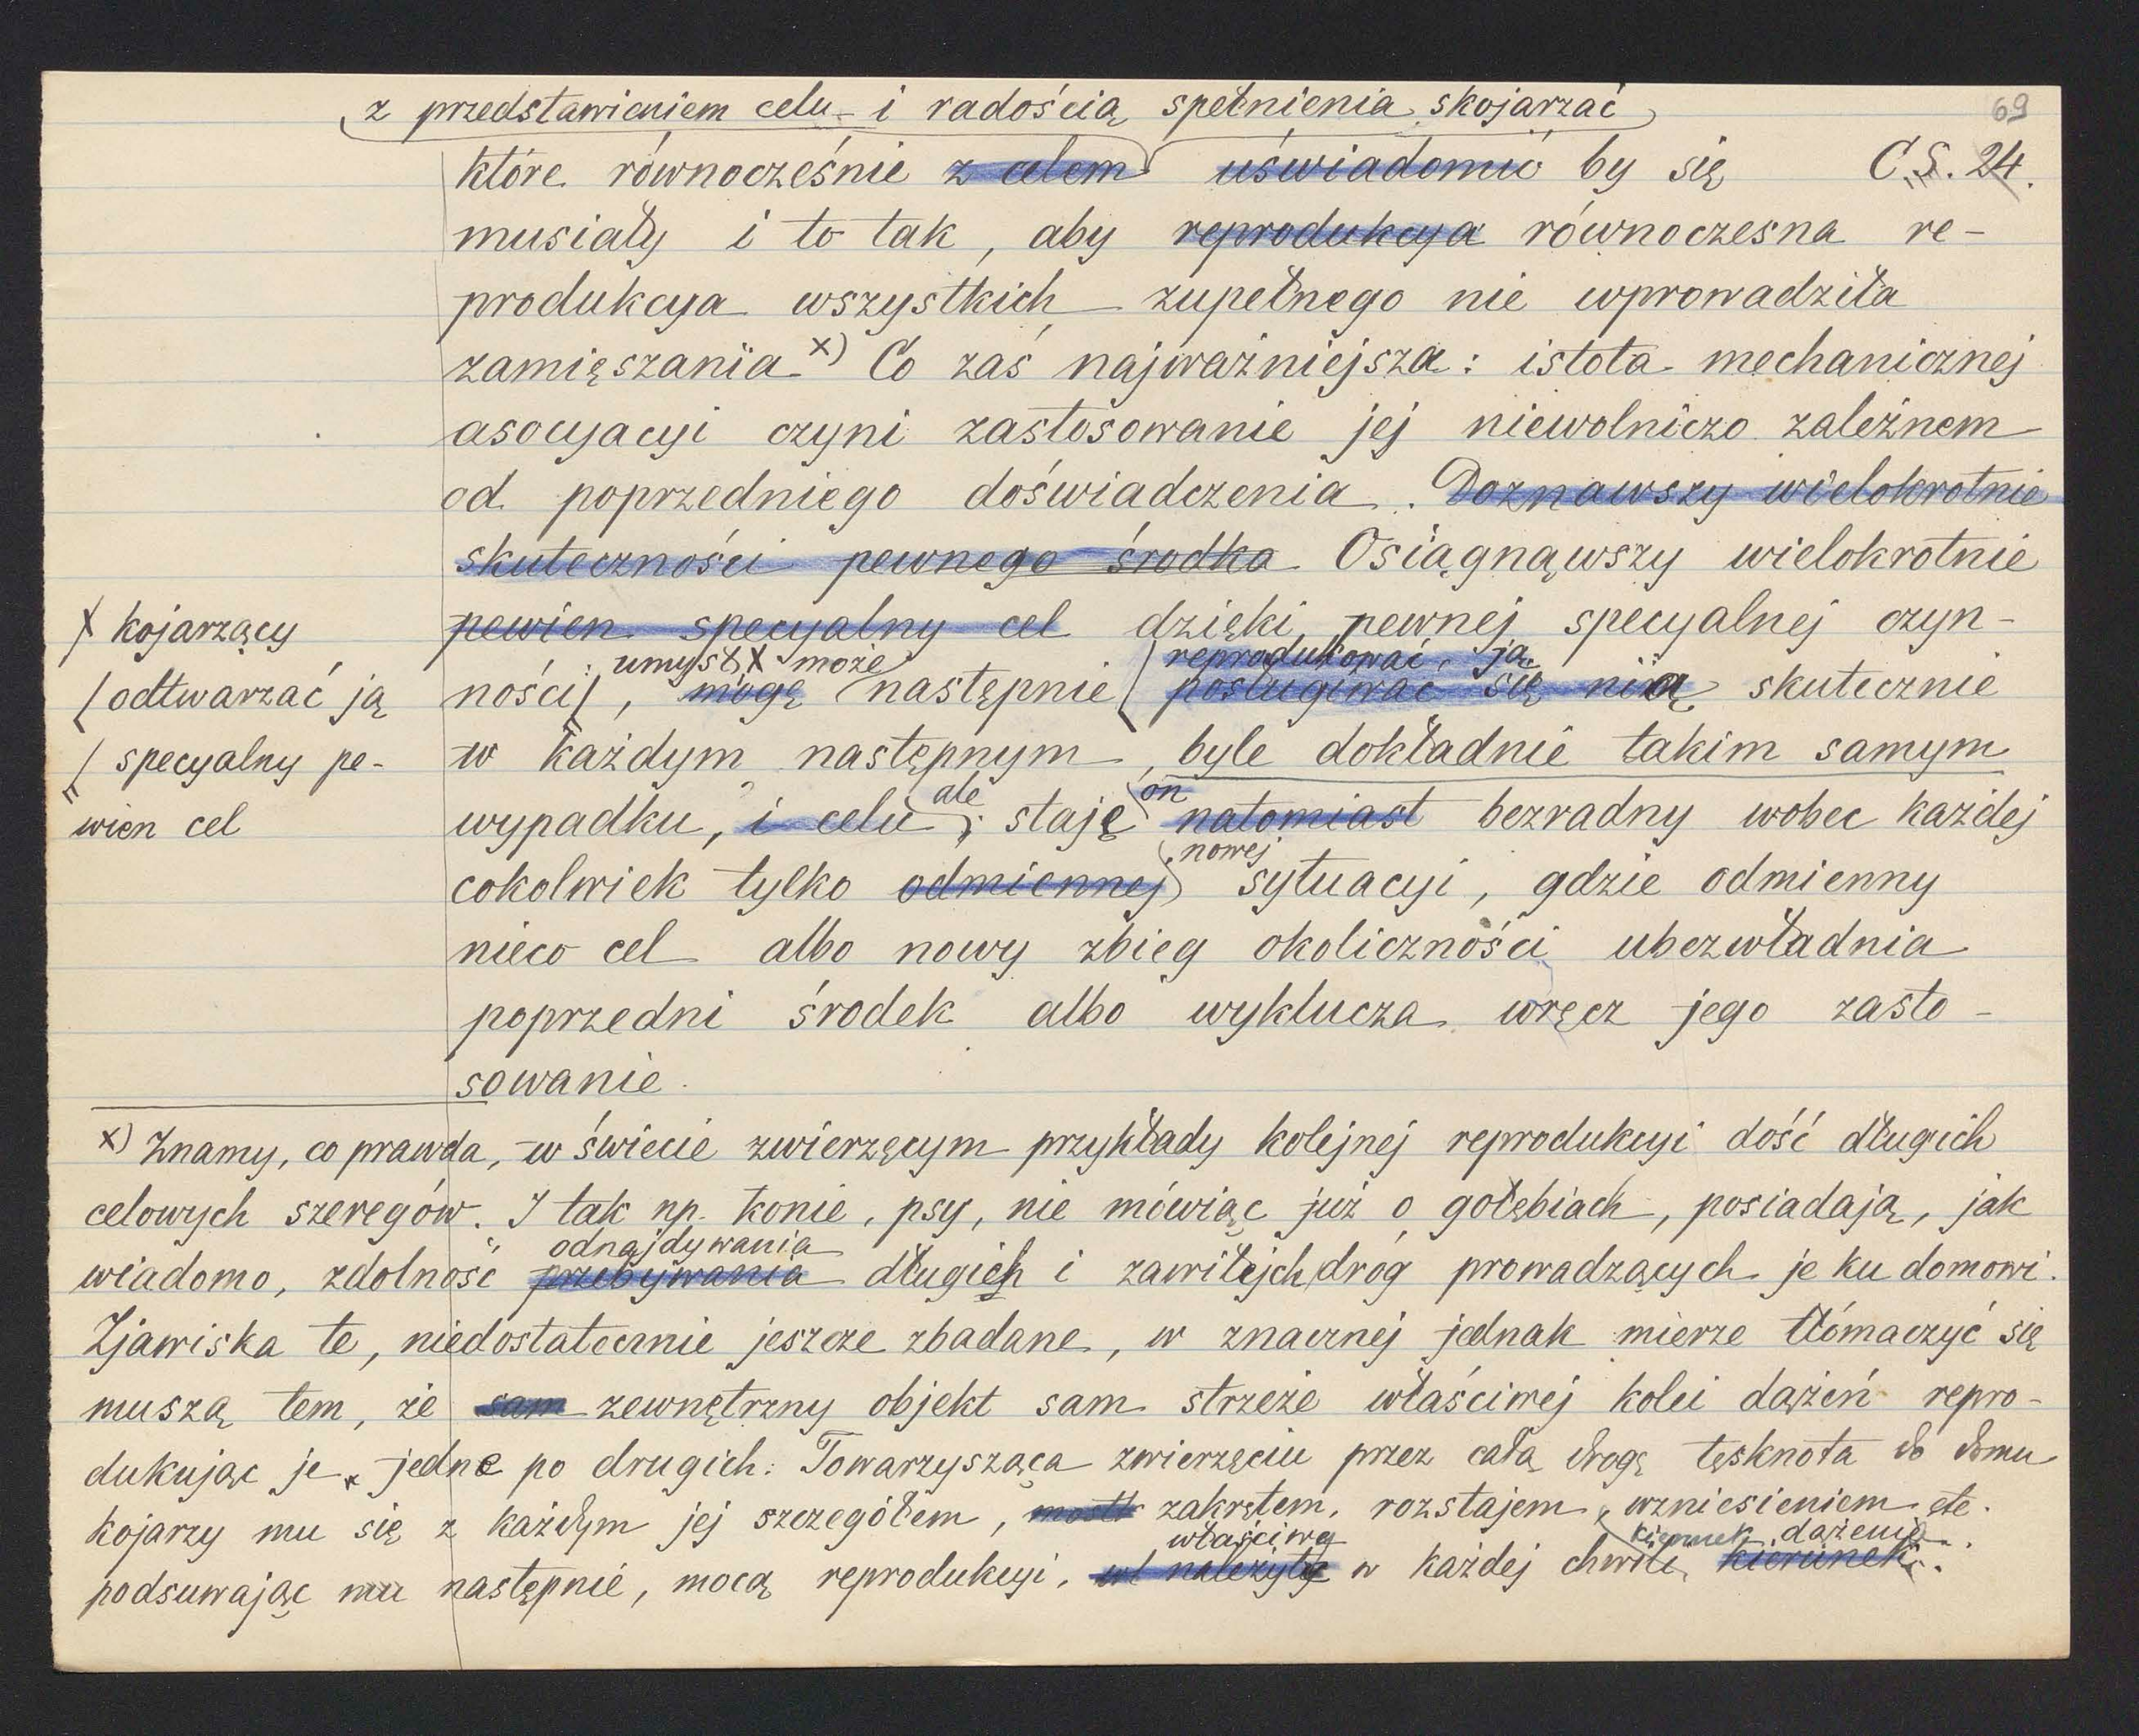 69
z przedstawieniem celu i radością spełnienia skojarzać
które równocześnie z celem uświadomić by się C.S. 24.
musiały i to tak, aby reprodukcya równoczesna re-
produkcya wszystkich zupełnego nie wprowadziła
zamięszania x) Co zaś najważniejsza: istota mechanicznej
asocyacyi czyni zastosowanie jej niewolniczo zależnem
od poprzedniego doświadczenia. Doznawszy wielokrotnie
skuteczności pewnego środka Osiągnąwszy wielokrotnie
pewien specyalny cel dzięki pewnej specyalnej czyn-
umysł x może reprodukować ją
ności, mogę następnie posługiwać się nią skutecznie
w każdym następnym, byle dokładnie takim samym
ale on
wypadku, i celu; staję natomiast bezradny wobec każdej
nowej
cokolwiek tylko odmiennej sytuacyi, gdzie odmienny
nieco cel albo nowy zbieg okoliczności ubezwładnia
poprzedni środek albo wyklucza wręcz jego zasto-
sowanie.
x kojarzący
odtwarzać ją
specyalny pe-
wien cel
x) Znamy, co prawda, w świecie zwierzęcym przykłady kolejnej reprodukcyi dość długich
celowych szeregów. I tak np. konie, psy, nie mówiąc już o gołębiach, posiadają, jak
odnajdywania
wiadomo, zdolność przebywania długich i zawiłych dróg prowadzących je ku domowi.
Zjawiska te, niedostatecznie jeszcze zbadane, w znacznej jednak mierze tłómaczyć się
muszą tem, że sam zewnętrzny objekt sam strzeże właściwej kolei dążeń repro-
dukując je jedne po drugich: Towarzysząca zwierzęciu przez całą drogę tęsknota do domu
kojarzy mu się z każdym jej szczegółem, zakrętem, rozstajem, wzniesieniem etc.
właściwy kierunek dążenia
podsuwając mu następnie, mocą reprodukcyi, należyty w każdej chwili kierunek.